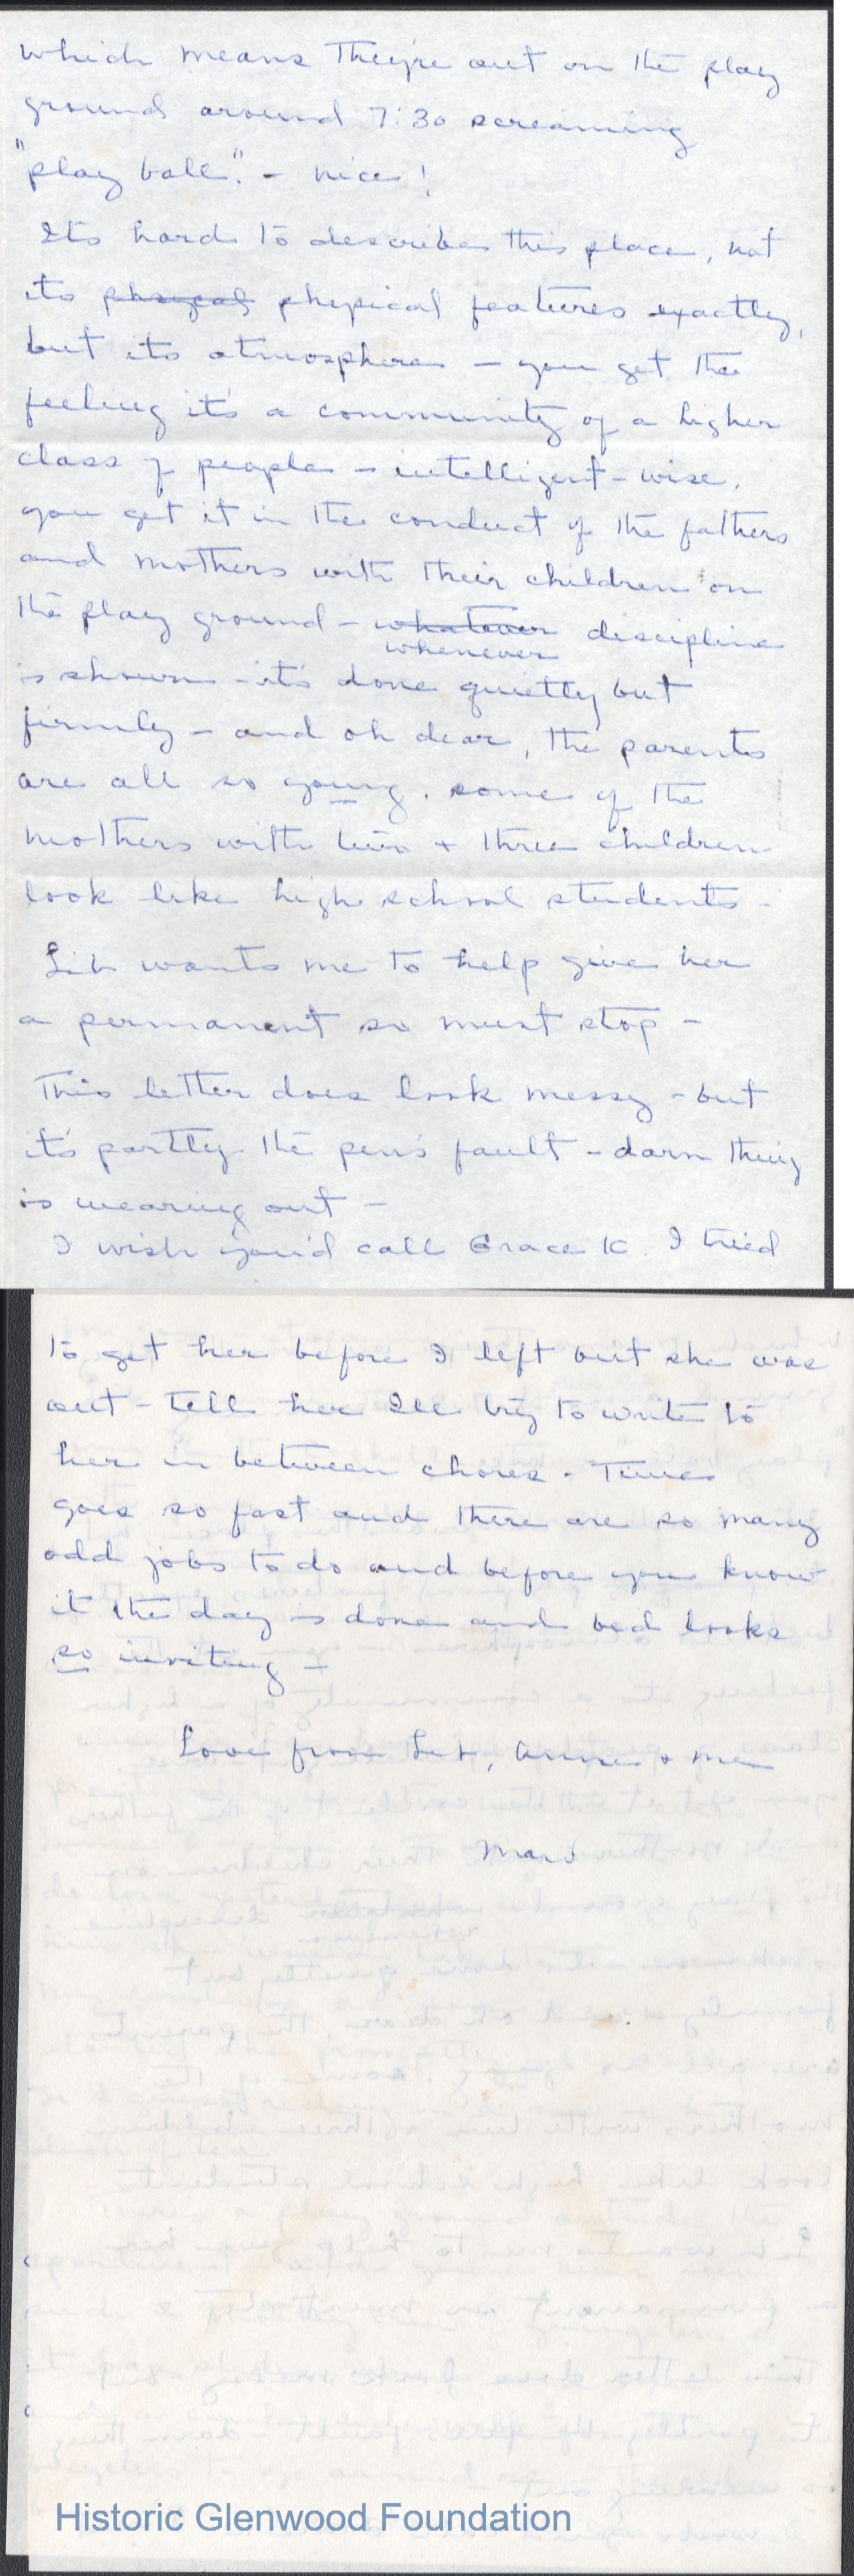 which means they're out on the play
ground around 7:30 screaming
"play ball". - nice!
Its hard to describe this place, not
its phsycal physical features exactly,
but its atmosphere - you get the
feeling it's a community of a higher
class of people - intelligent-wise.
you get it in the conduct of the fathers
and mothers with their children on
the play ground - whatever discipline
whenever
is shown - it's done quietly but
firmly - and oh dear, the parents
are all so young. some of the
mothers with two + three children
look like high school students -
Lib wants me to help give her
a permanent so must stop -
This letter does look messy - but
it's partly the pen's fault - darn thing
is wearing out -
I wish you'd call Grace K. I tried
to get her before I left but she was
out - tell her I'll try to write to
her in between chores. Time
goes so fast and there are so many
odd jobs to do and before you know
it the day is done and bed looks
so inviting -
Love from Lib, Anne + me
Historic Glenwood Foundation